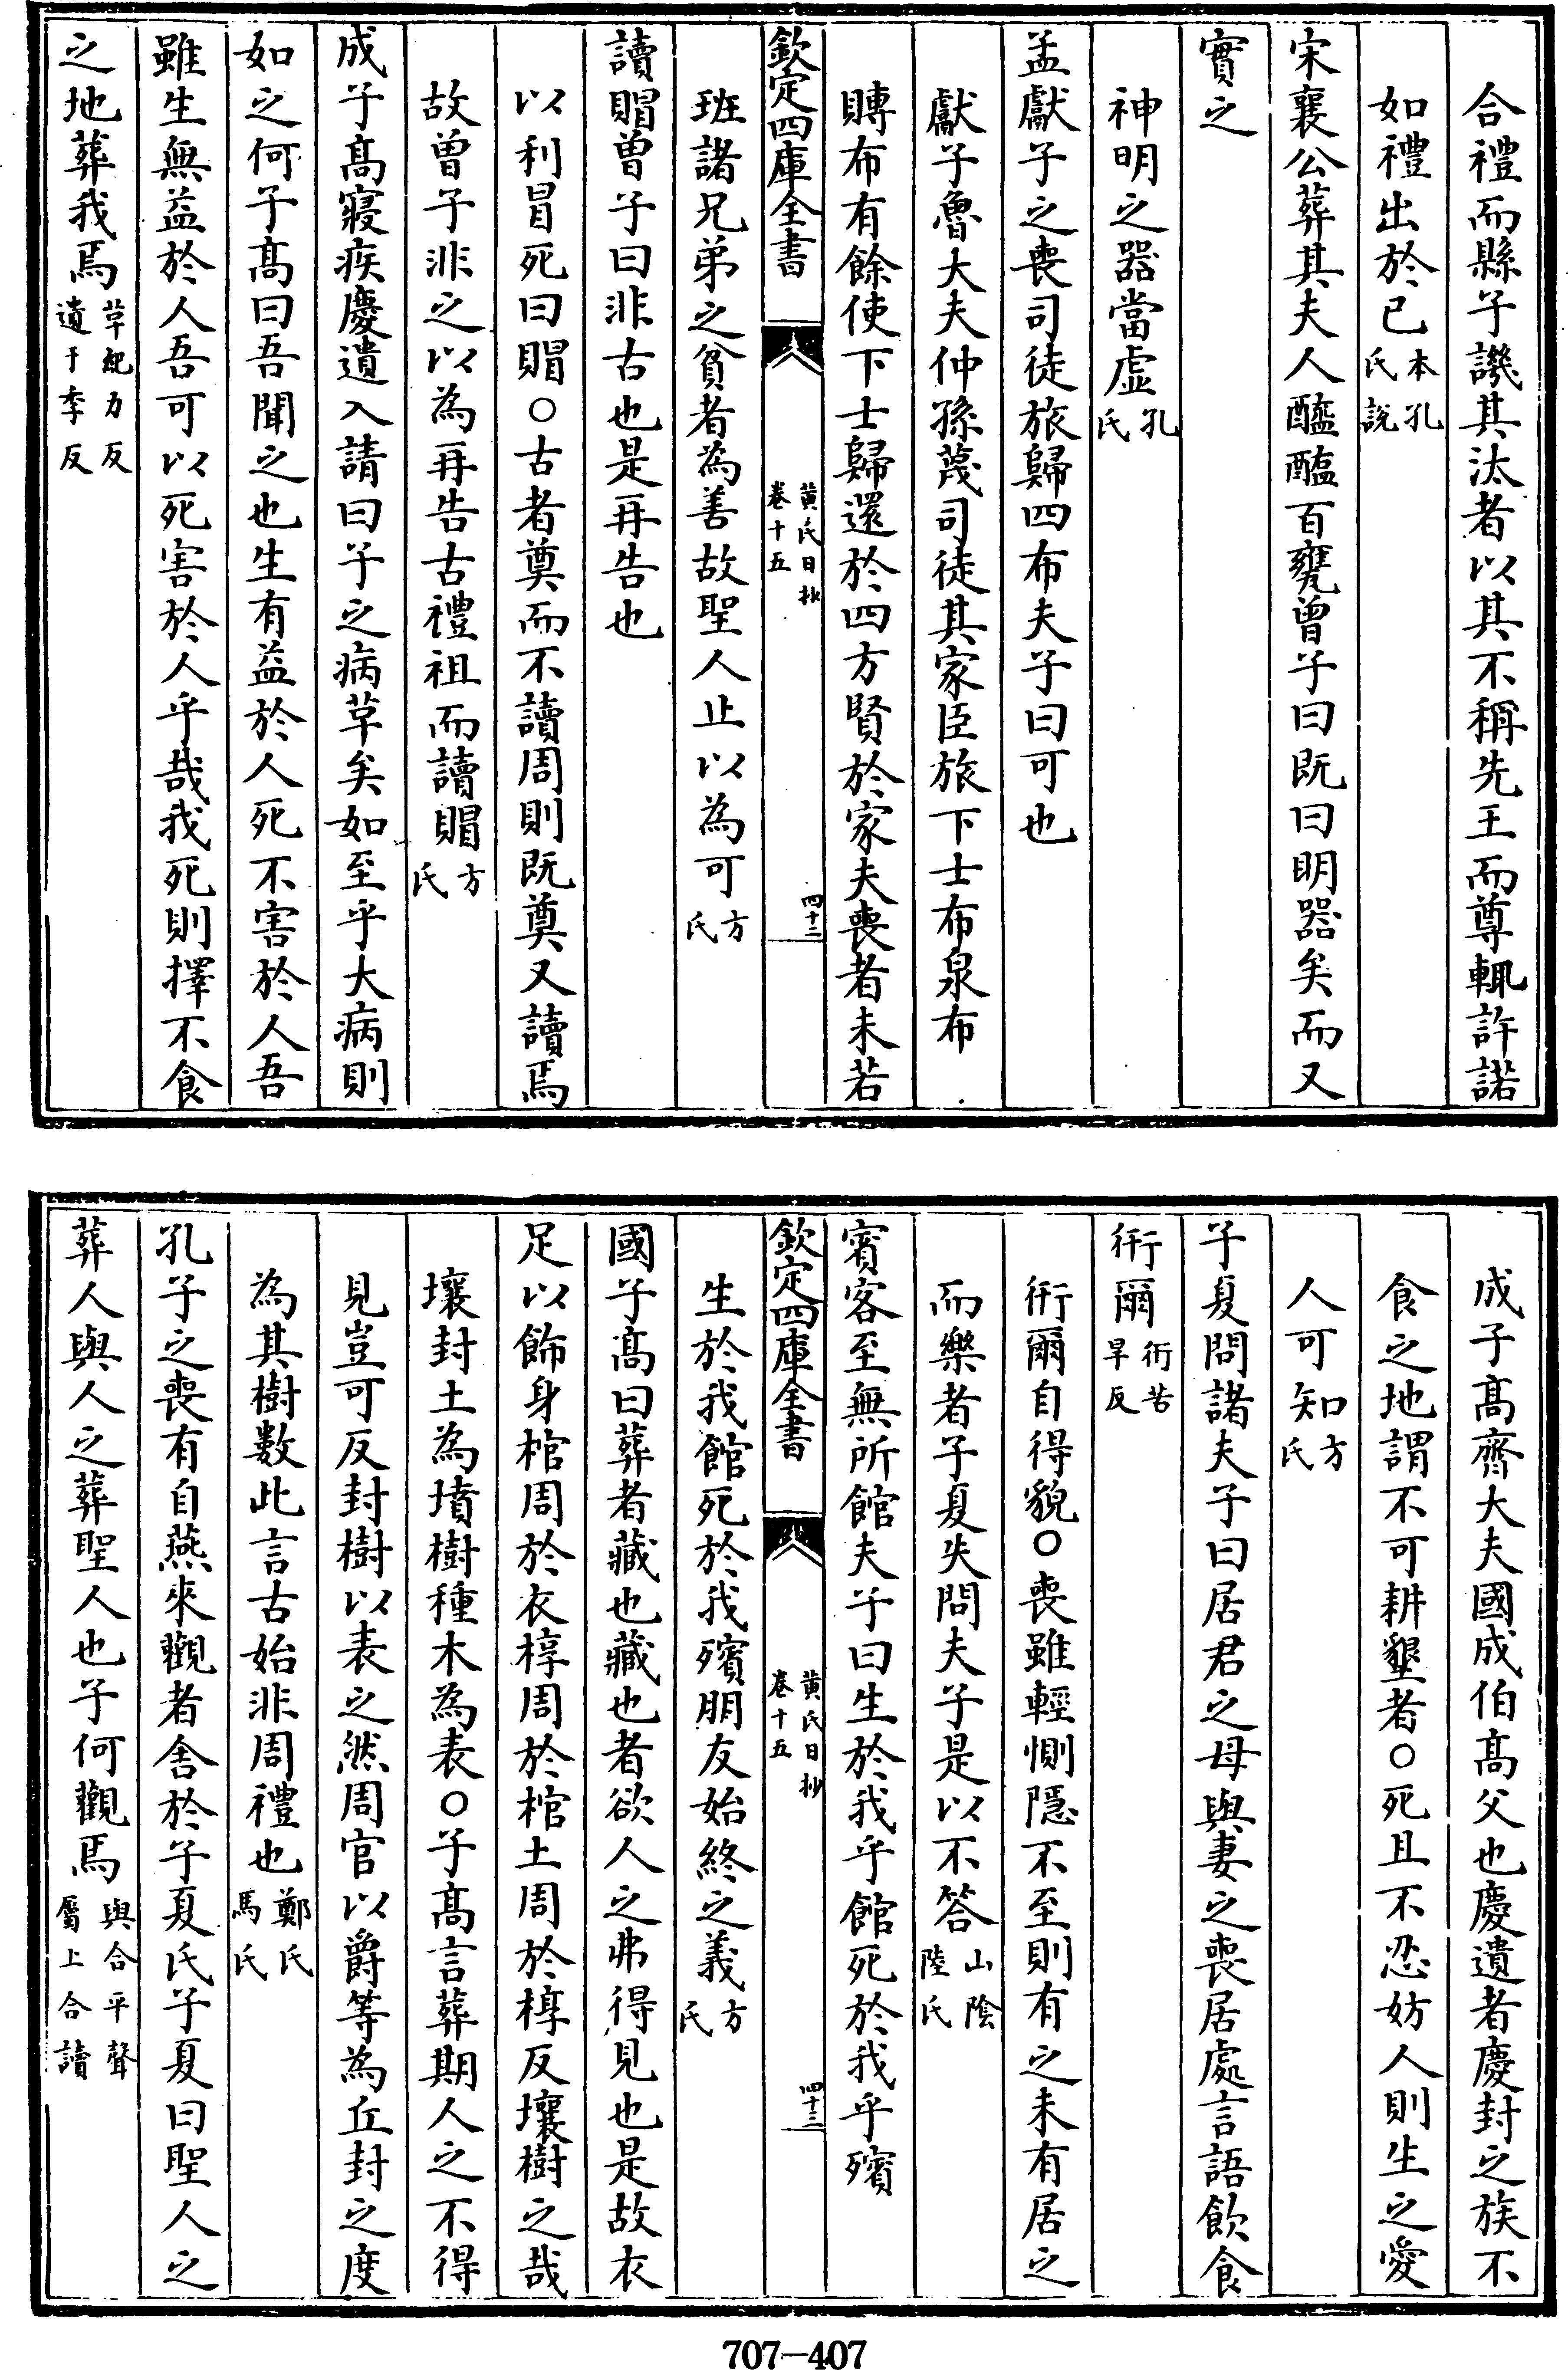 合禮而縣子譏其汰者以其不稱先王而尊輒許諾
如禮出於已本孔氏說
宋襄公葬其夫人醯醢百甕曾子曰既曰明器矣而又
實之
神明之器當虛孔氏
孟獻子之喪司徒旅歸四布夫子曰可也
獻子魯大夫仲孫蔑司徒其家臣旅下士布泉布
賻布有餘使下士歸還於四方賢於家夫喪者未若
欽定四庫全書 黃氏日抄 卷十五 四十二
班諸兄弟之貧者為善故聖人止以為可方氏
讀賵曾子曰非古也是再告也
以利冒死曰賵○古者奠而不讀周則既奠又讀焉
故曾子非之以為再告古禮祖而讀賵方氏
成子髙寢疾慶遺入請曰子之病革矣如至乎大病則
如之何子髙曰吾聞之也生有益於人死不害於人吾
雖生無益於人吾可以死害於人乎哉我死則擇不食
之地葬我焉革紀力反遺于季反
成子髙齊大夫國成伯髙父也慶遺者慶封之族不
食之地謂不可耕墾者○死且不忍妨人則生之愛
人可知方氏
子夏問諸夫子曰居君之母與妻之喪居處言語飲食
衎爾衎苦旱反
衎爾自得貌○喪雖輕惻隱不至則有之未有居之
而樂者子夏失問夫子是以不答山陰陸氏
賓客至無所館夫子曰生於我乎館死於我乎殯
欽定四庫全書 黃氏日抄 卷十五 四十三
生於我館死於我殯朋友始終之義方氏
國子髙曰葬者藏也藏也者欲人之弗得見也是故衣
足以飾身棺周於衣椁周於棺土周於椁反壤樹之哉
壤封土為墳樹種木為表○子髙言葬期人之不得
見豈可反封樹以表之然周官以爵等為丘封之度
為其樹數此言古始非周禮也鄭氏馬氏
孔子之喪有自燕來觀者舍於子夏氏子夏曰聖人之
葬人與人之葬聖人也子何觀焉與合平聲屬上合讀
707-407